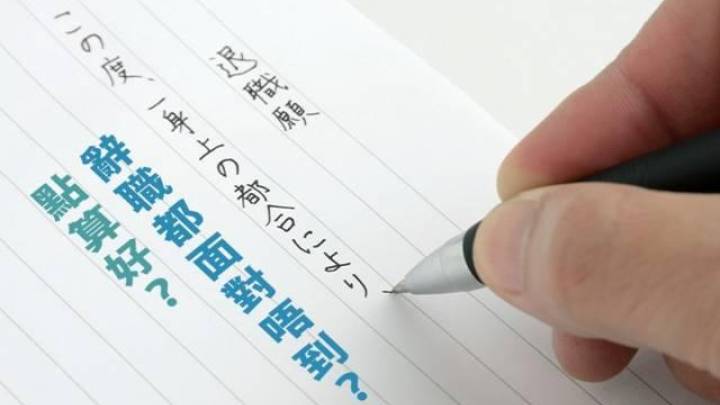 退職願
この度、一身上の都合により
辭職都面對唔到?
點算好?